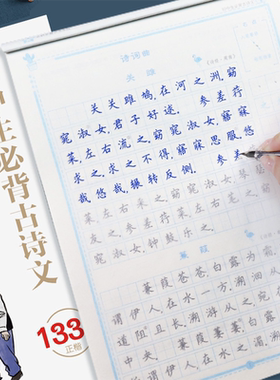 诗词部
关雎
关关雎鸠,在河之洲。窈
窕淑女,君子好逑。参差荇
菜,左右流之。窈窕淑女,寤寐
求之。求之不得,寤寐思服。悠
哉悠哉,辗转反侧。参差
菜,左右采之。窈窕淑女,琴瑟
友之。参差荇菜,左右芼之。窈
窕淑女,钟鼓乐之。
蒹葭
蒹葭苍苍,白露为霜。所
谓伊人,在水一方。溯洄从之,
道阻且长。溯游从之,宛在水
中央。蒹葭萋萋,白露
谓伊人,在水
生必背古诗文
133
正楷